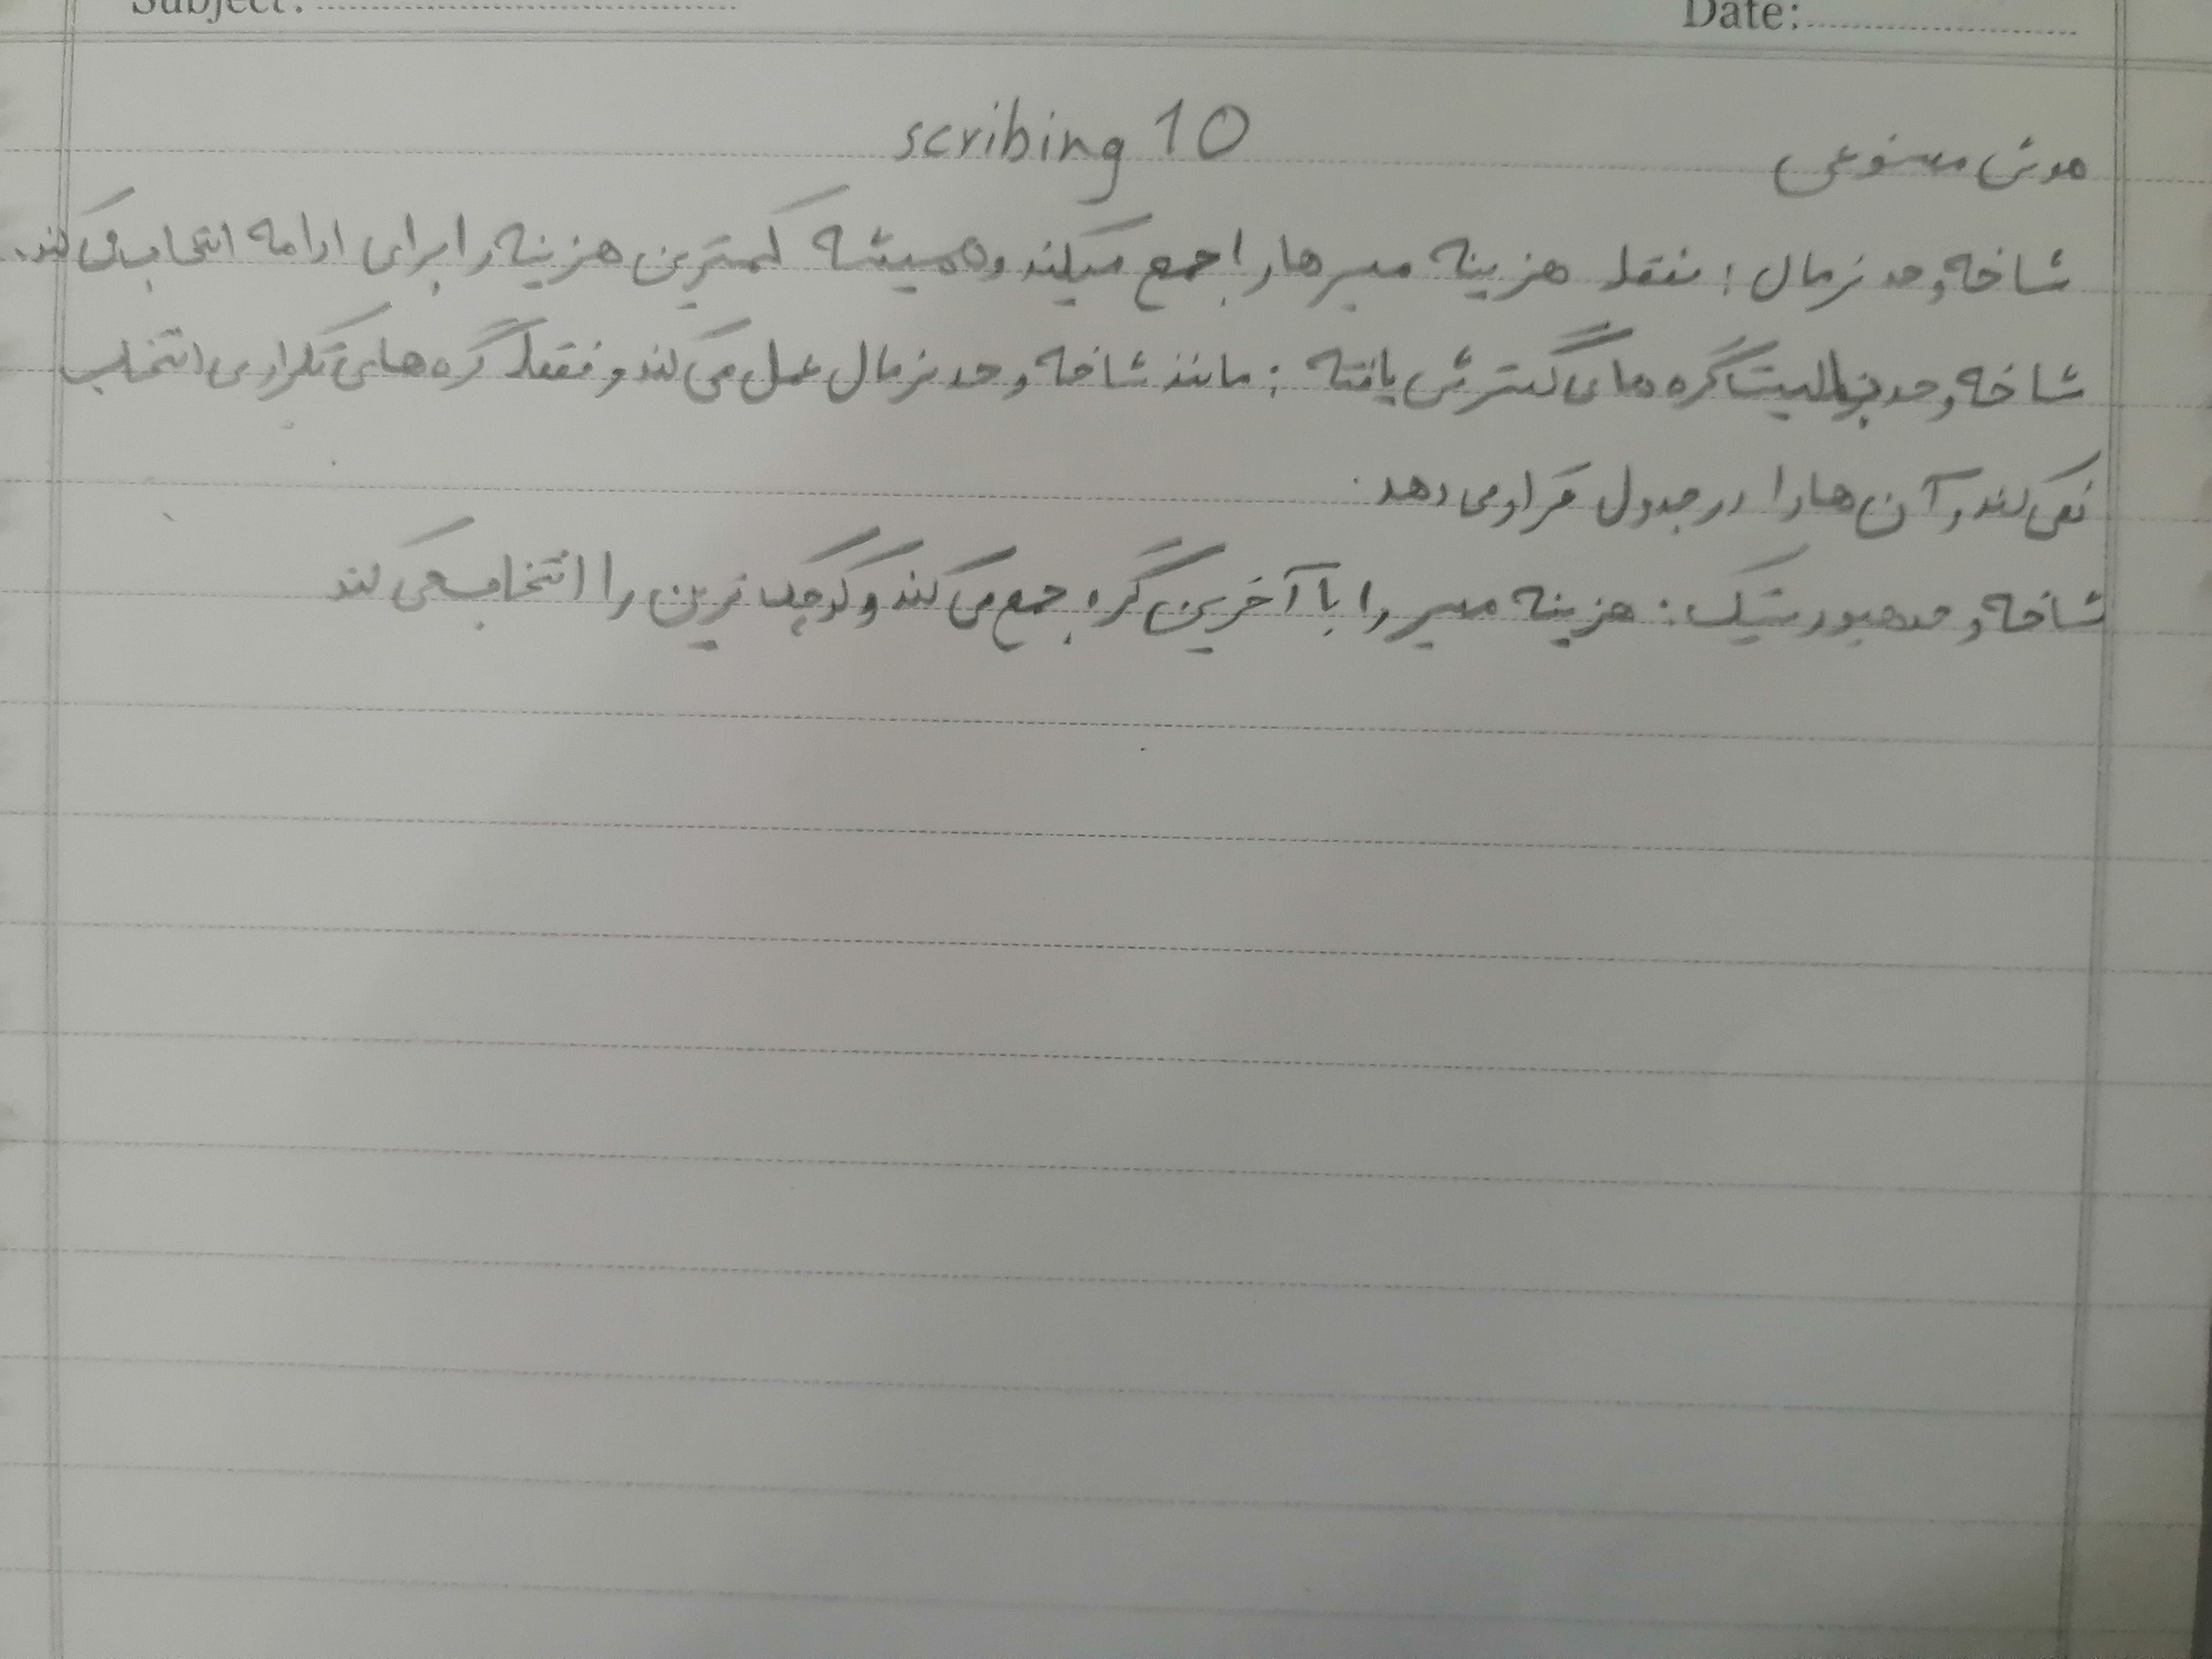 Subject: Date:
scribing 10
هوش مصنوعی
شاخه و حد نرمال : فقط هزینه مسیرها را جمع میکند و همیشه کمترین هزینه را برای ادامه انتخاب می کند.
شاخه و حد با لیست گره های گسترش یافته : مانند شاخه و حد نرمال عمل می کند و فقط گره های تکراری انتخاب
نمی کند و آن ها را در جدول قرار می دهد.
شاخه و حد هیورستیک : هزینه مسیر را با آخرین گره جمع می کند و کوچک ترین را انتخاب می کند